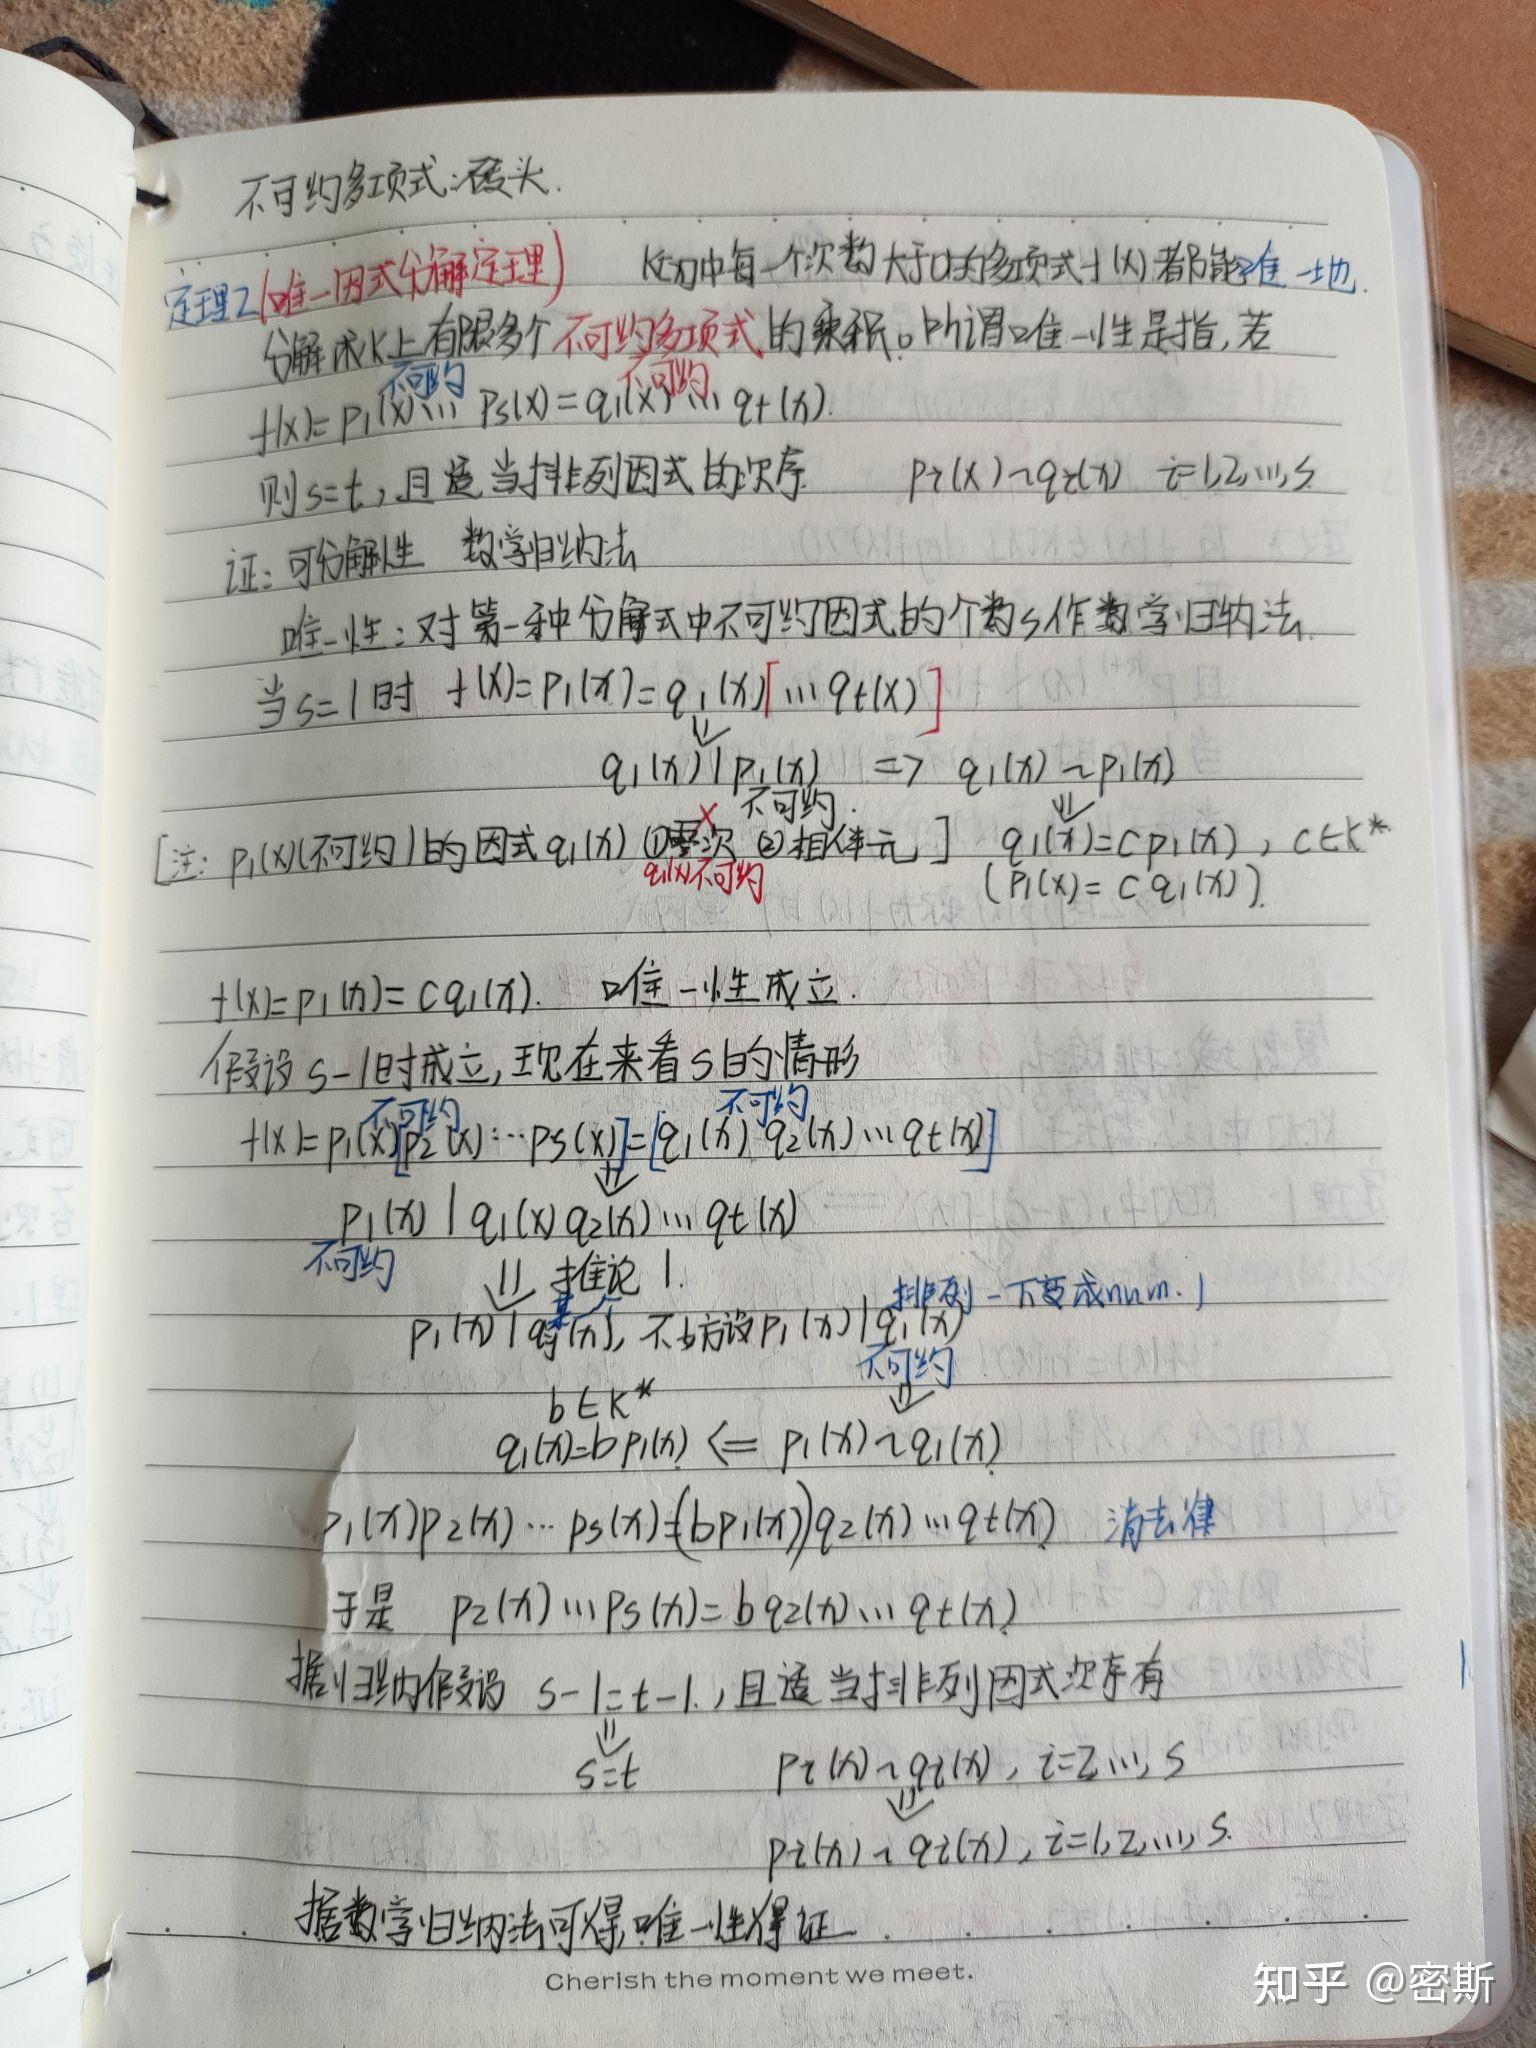 不可约多项式:源头.
定理2(唯一因式分解定理) K[x]中每一个次数大于0的多项式f(x)都能唯一地
分解成K上有限多个不可约多项式的乘积。所谓唯一性是指,若
不可约 不可约
f(x)=p1(x)…ps(x)=q1(x)…qt(x).
则s=t,且适当排列因式的次序 pi(x)~qi(x) i=1,2,…,s.
证:可分解性 数学归纳法
唯一性:对第一种分解式中不可约因式的个数s作数学归纳法.
当s=1时 f(x)=p1(x)=q1(x)[…qt(x)]
⇓
q1(x)|p1(x) => q1(x)~p1(x)
不可约. ⇓
[注: p1(x)(不可约)的因式q1(x) ①零次 ②相伴元] q1(x)=cp1(x), c∈K*
× q1(x)不可约 (p1(x)=cq1(x)).
f(x)=p1(x)=cq1(x). 唯一性成立.
假设s-1时成立,现在来看s的情形
不可约 不可约
f(x)=p1(x)[p2(x)…ps(x)]=[q1(x)q2(x)…qt(x)]
⇓
p1(x)|q1(x)q2(x)…qt(x)
不可约 ⇓ 推论1.
某个 排列一下变成num.1
p1(x)|qj(x), 不妨设p1(x)|q1(x)
不可约
b∈K* ⇓
q1(x)=bp1(x) <= p1(x)~q1(x)
p1(x)p2(x)…ps(x)=(bp1(x))q2(x)…qt(x) 消去律
于是 p2(x)…ps(x)=bq2(x)…qt(x)
据归纳假设 s-1=t-1, 且适当排列因式次序有
⇓
s=t pi(x)~qi(x), i=2,…,s
⇓
pi(x)~qi(x), i=1,2,…,s.
据数学归纳法可得,唯一性得证.
Cherish the moment we meet.
知乎 @密斯